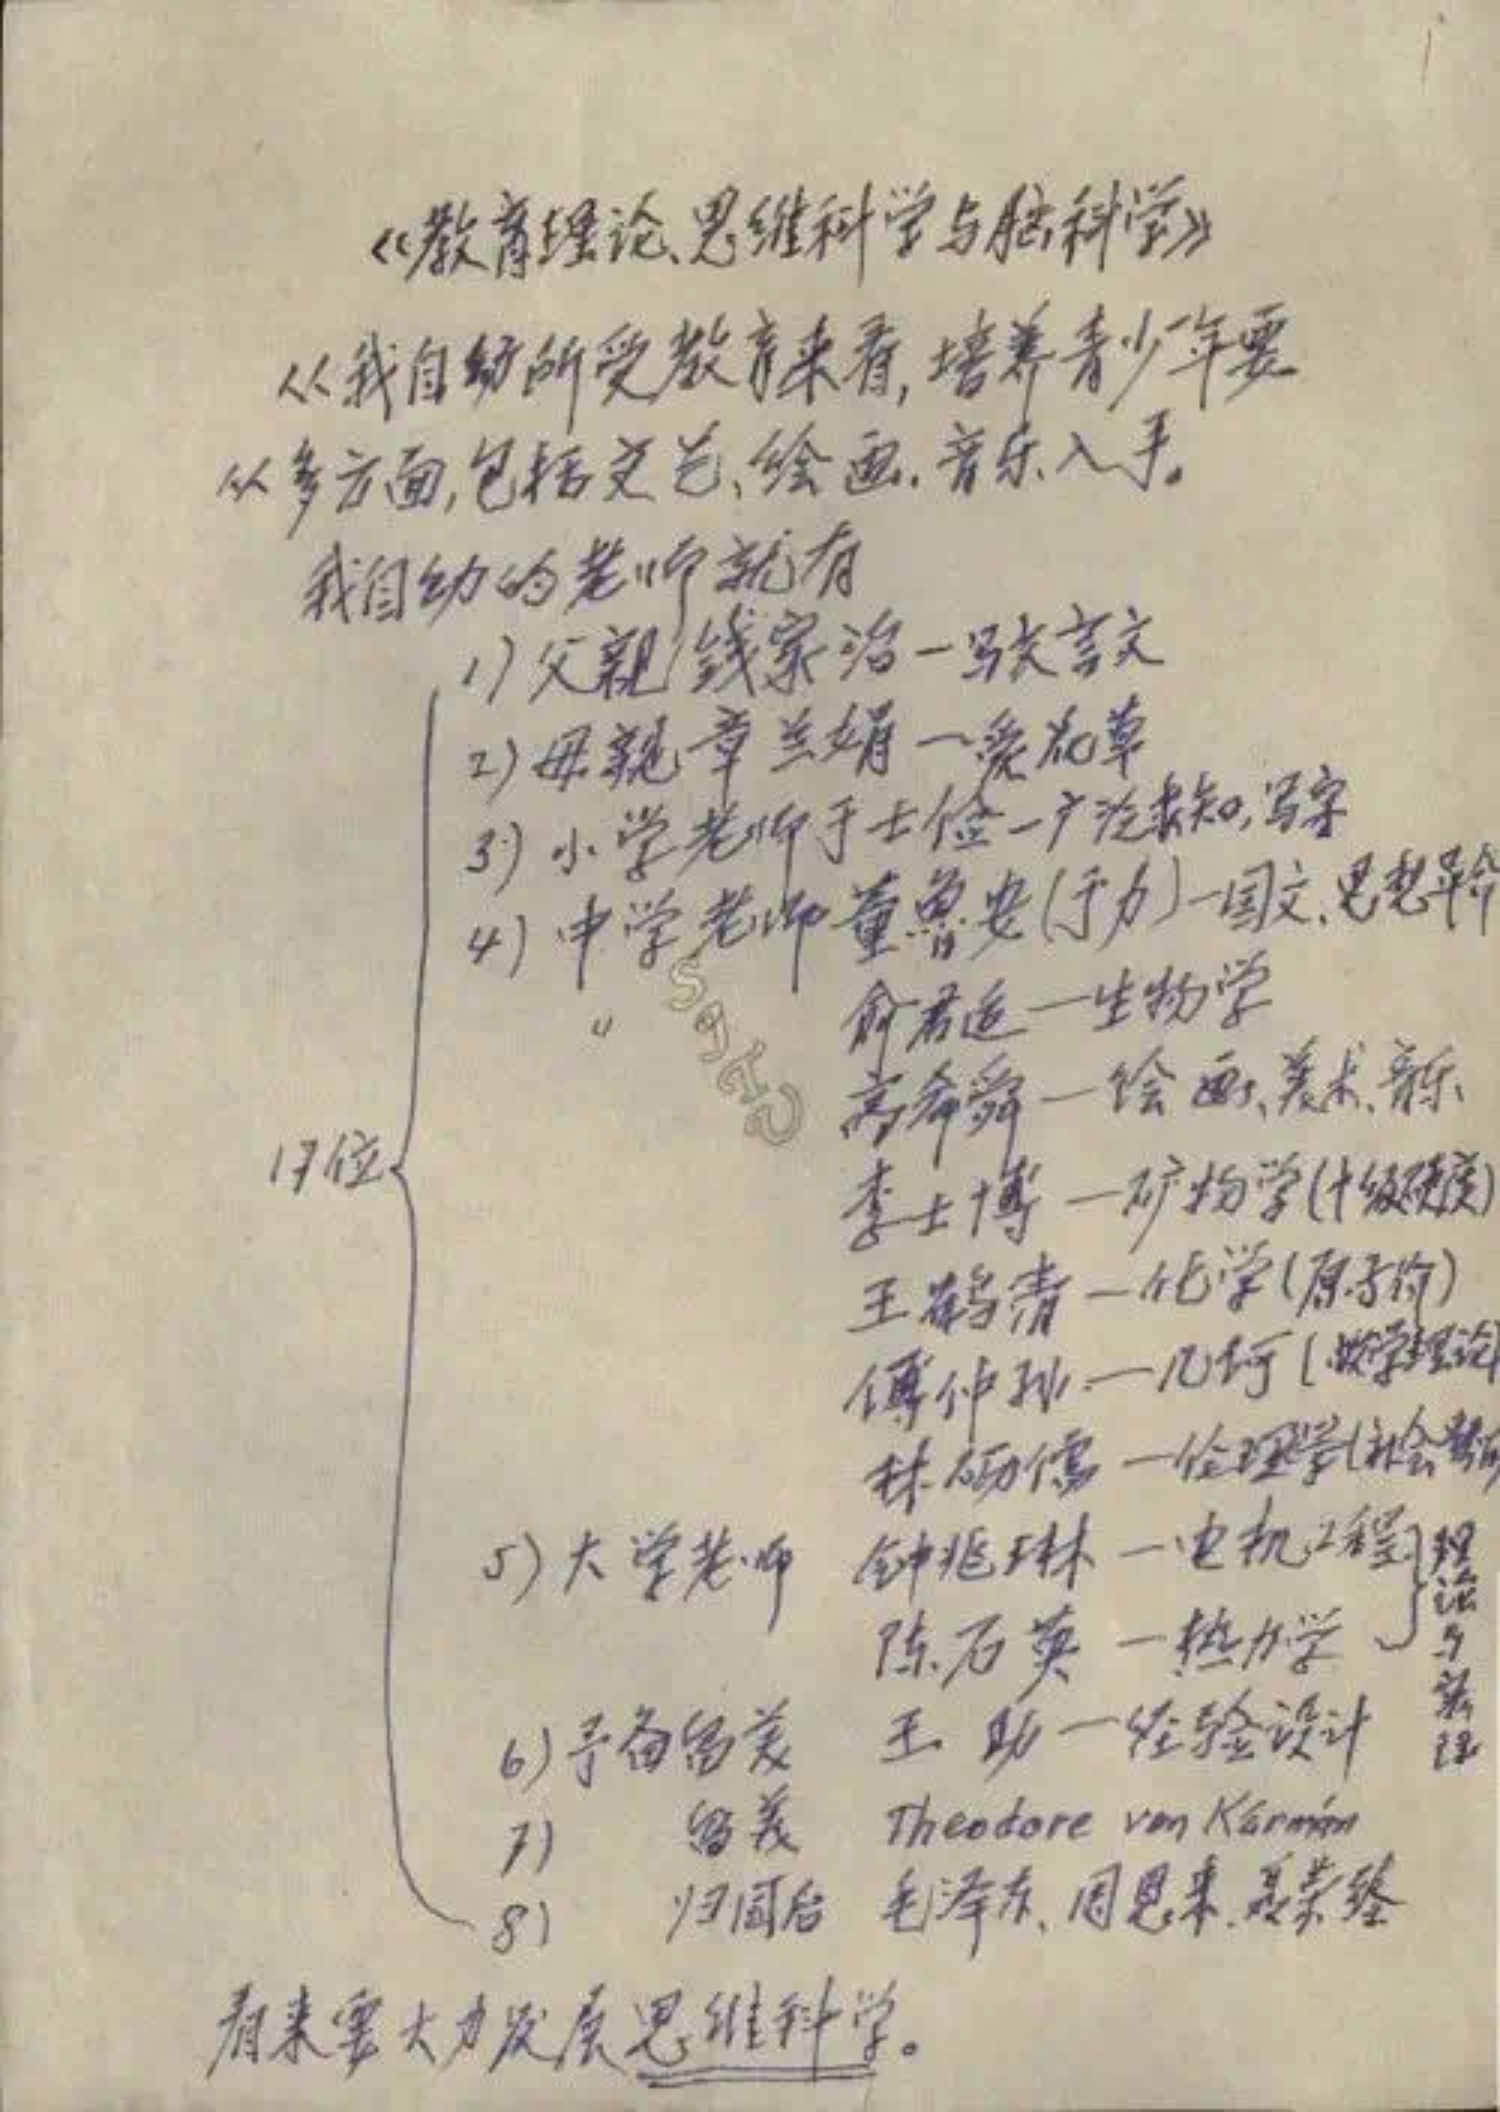 《教育理论、思维科学与脑科学》
从我自幼所受教育来看,培养青少年要
从多方面,包括文艺、绘画、音乐、入手。
我自幼的老师就有
1) 父亲 钱家治—写文言文
2) 母亲 章兰娟—爱花草
3) 小学老师于士俭—广泛求知,写字
4) 中学老师 董鲁安(于力)—国文、思想革命
" 俞君适—生物学
高希舜—绘画、美术、音乐、
李士博—矿物学(十级硬度)
王鹤清—化学(原子价)
傅仲孙—几何(数学理论)
林砺儒—伦理学(社会
17位
5) 大学老师 钟兆琳—电机工程
陈石英—热力学
理论与实理
6) 予备留美 王助—经验设计
7) 留美 Theodore von Kármán
8) 归国后 毛泽东、周恩来、聂荣臻
看来要大力发展思维科学。